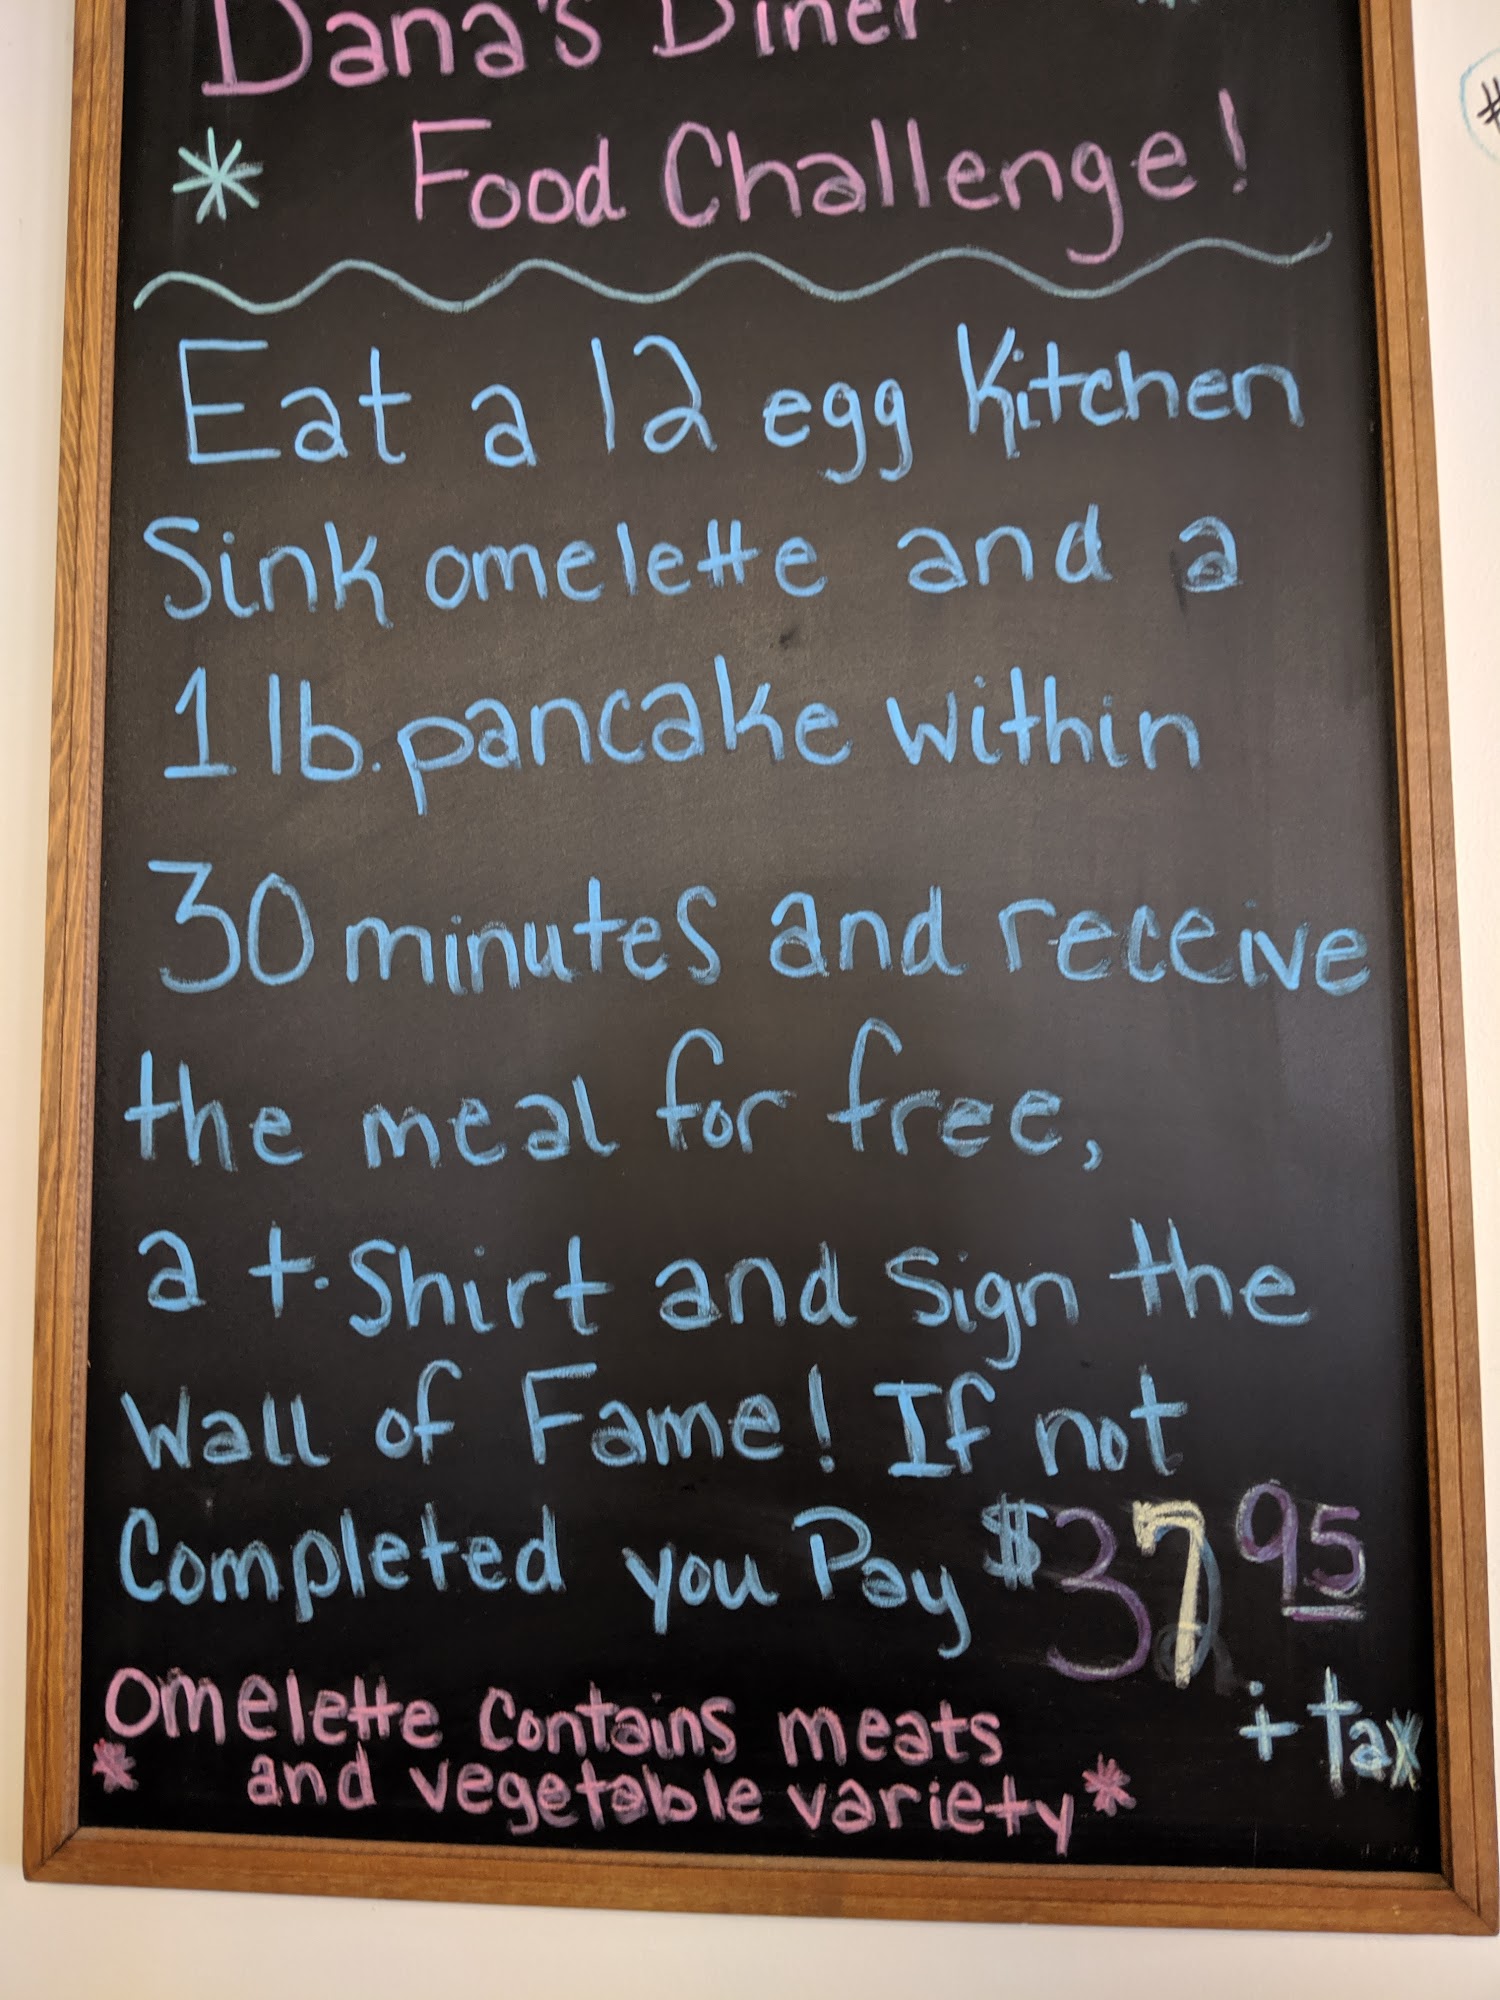 Dana's Diner
Food Challenge!
Eat a 12 egg Kitchen
Sink omelette and a
1 lb. pancake within
30 minutes and receive
the meal for free,
a t-Shirt and Sign the
Wall of Fame! If not
Completed you Pay $37.95
+ tax
omelette Contains meats
* and vegetable variety *
#